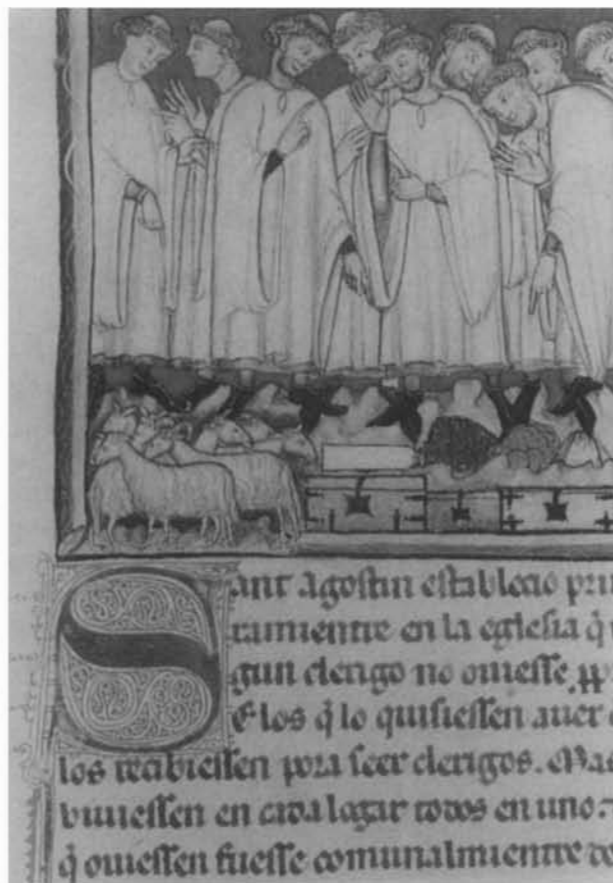 Sant agostin establecio pri
ramientre en la eglesia q̃
gun clerigo no ouiesse pp̃
E los q̃ lo quisiessen auer
los recibiessen pora seer clerigos. Mas
biuiessen en cada logar todos en uno.
q̃ ouiessen fuesse comunalmientre